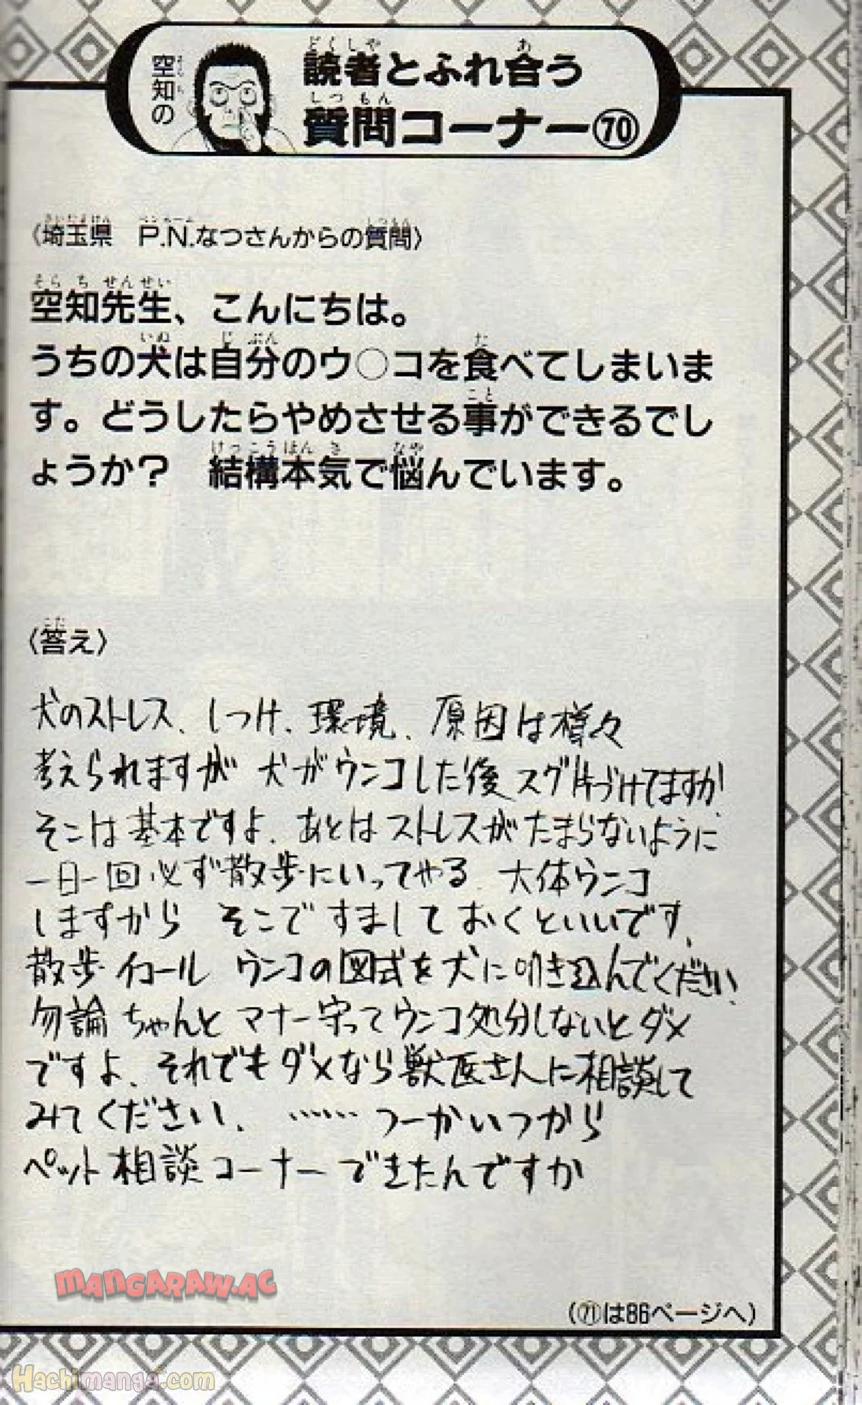 空知の
読者とふれ合う
質問コーナー⑦⓪
〈埼玉県　P.N.なつさんからの質問〉
空知先生、こんにちは。
うちの犬は自分のウ○コを食べてしまいま
す。どうしたらやめさせる事ができるでし
ょうか？　結構本気で悩んでいます。
〈答え〉
犬のストレス、しつけ、環境、原因は様々
考えられますが 犬がウンコした後スグ片づけてますか
そこは基本ですよ、あとはストレスがたまらないように
一日一回必ず散歩にいってやる、大体ウンコ
しますから そこですましておくといいです、
散歩イコール ウンコの図式を犬に叩き込んでください、
勿論ちゃんとマナー守ってウンコ処分しないとダメ
ですよ、それでもダメなら獣医さんに相談して
みてください、……つーかいつから
ペット相談コーナーできたんですか
MANGARAW.AC
（㋆は86ページへ）
Hachimanga.com